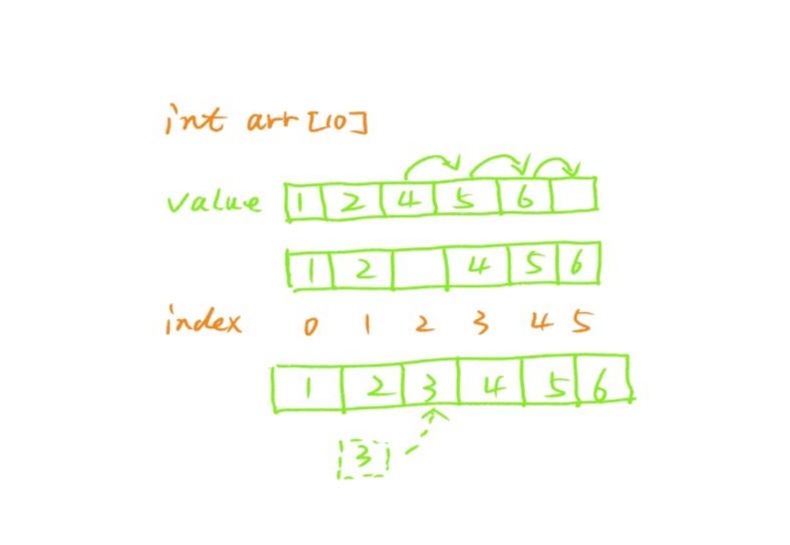 int arr[10]
value 1 2 4 5 6
1 2 4 5 6
index 0 1 2 3 4 5
1 2 3 4 5 6
3